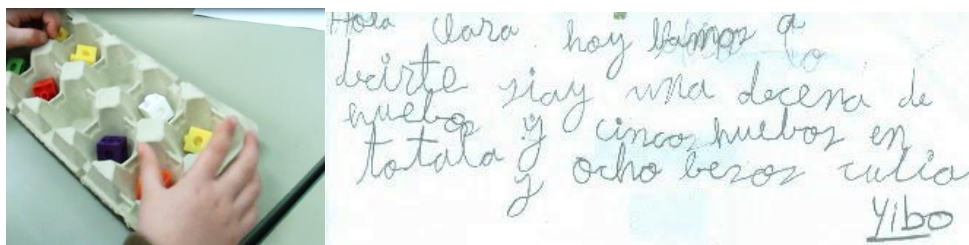 Hola Clara hoy bamos a
decirte siay una decena de
huebos y cinco huebos en
totala y ocho besos
y
Yibo